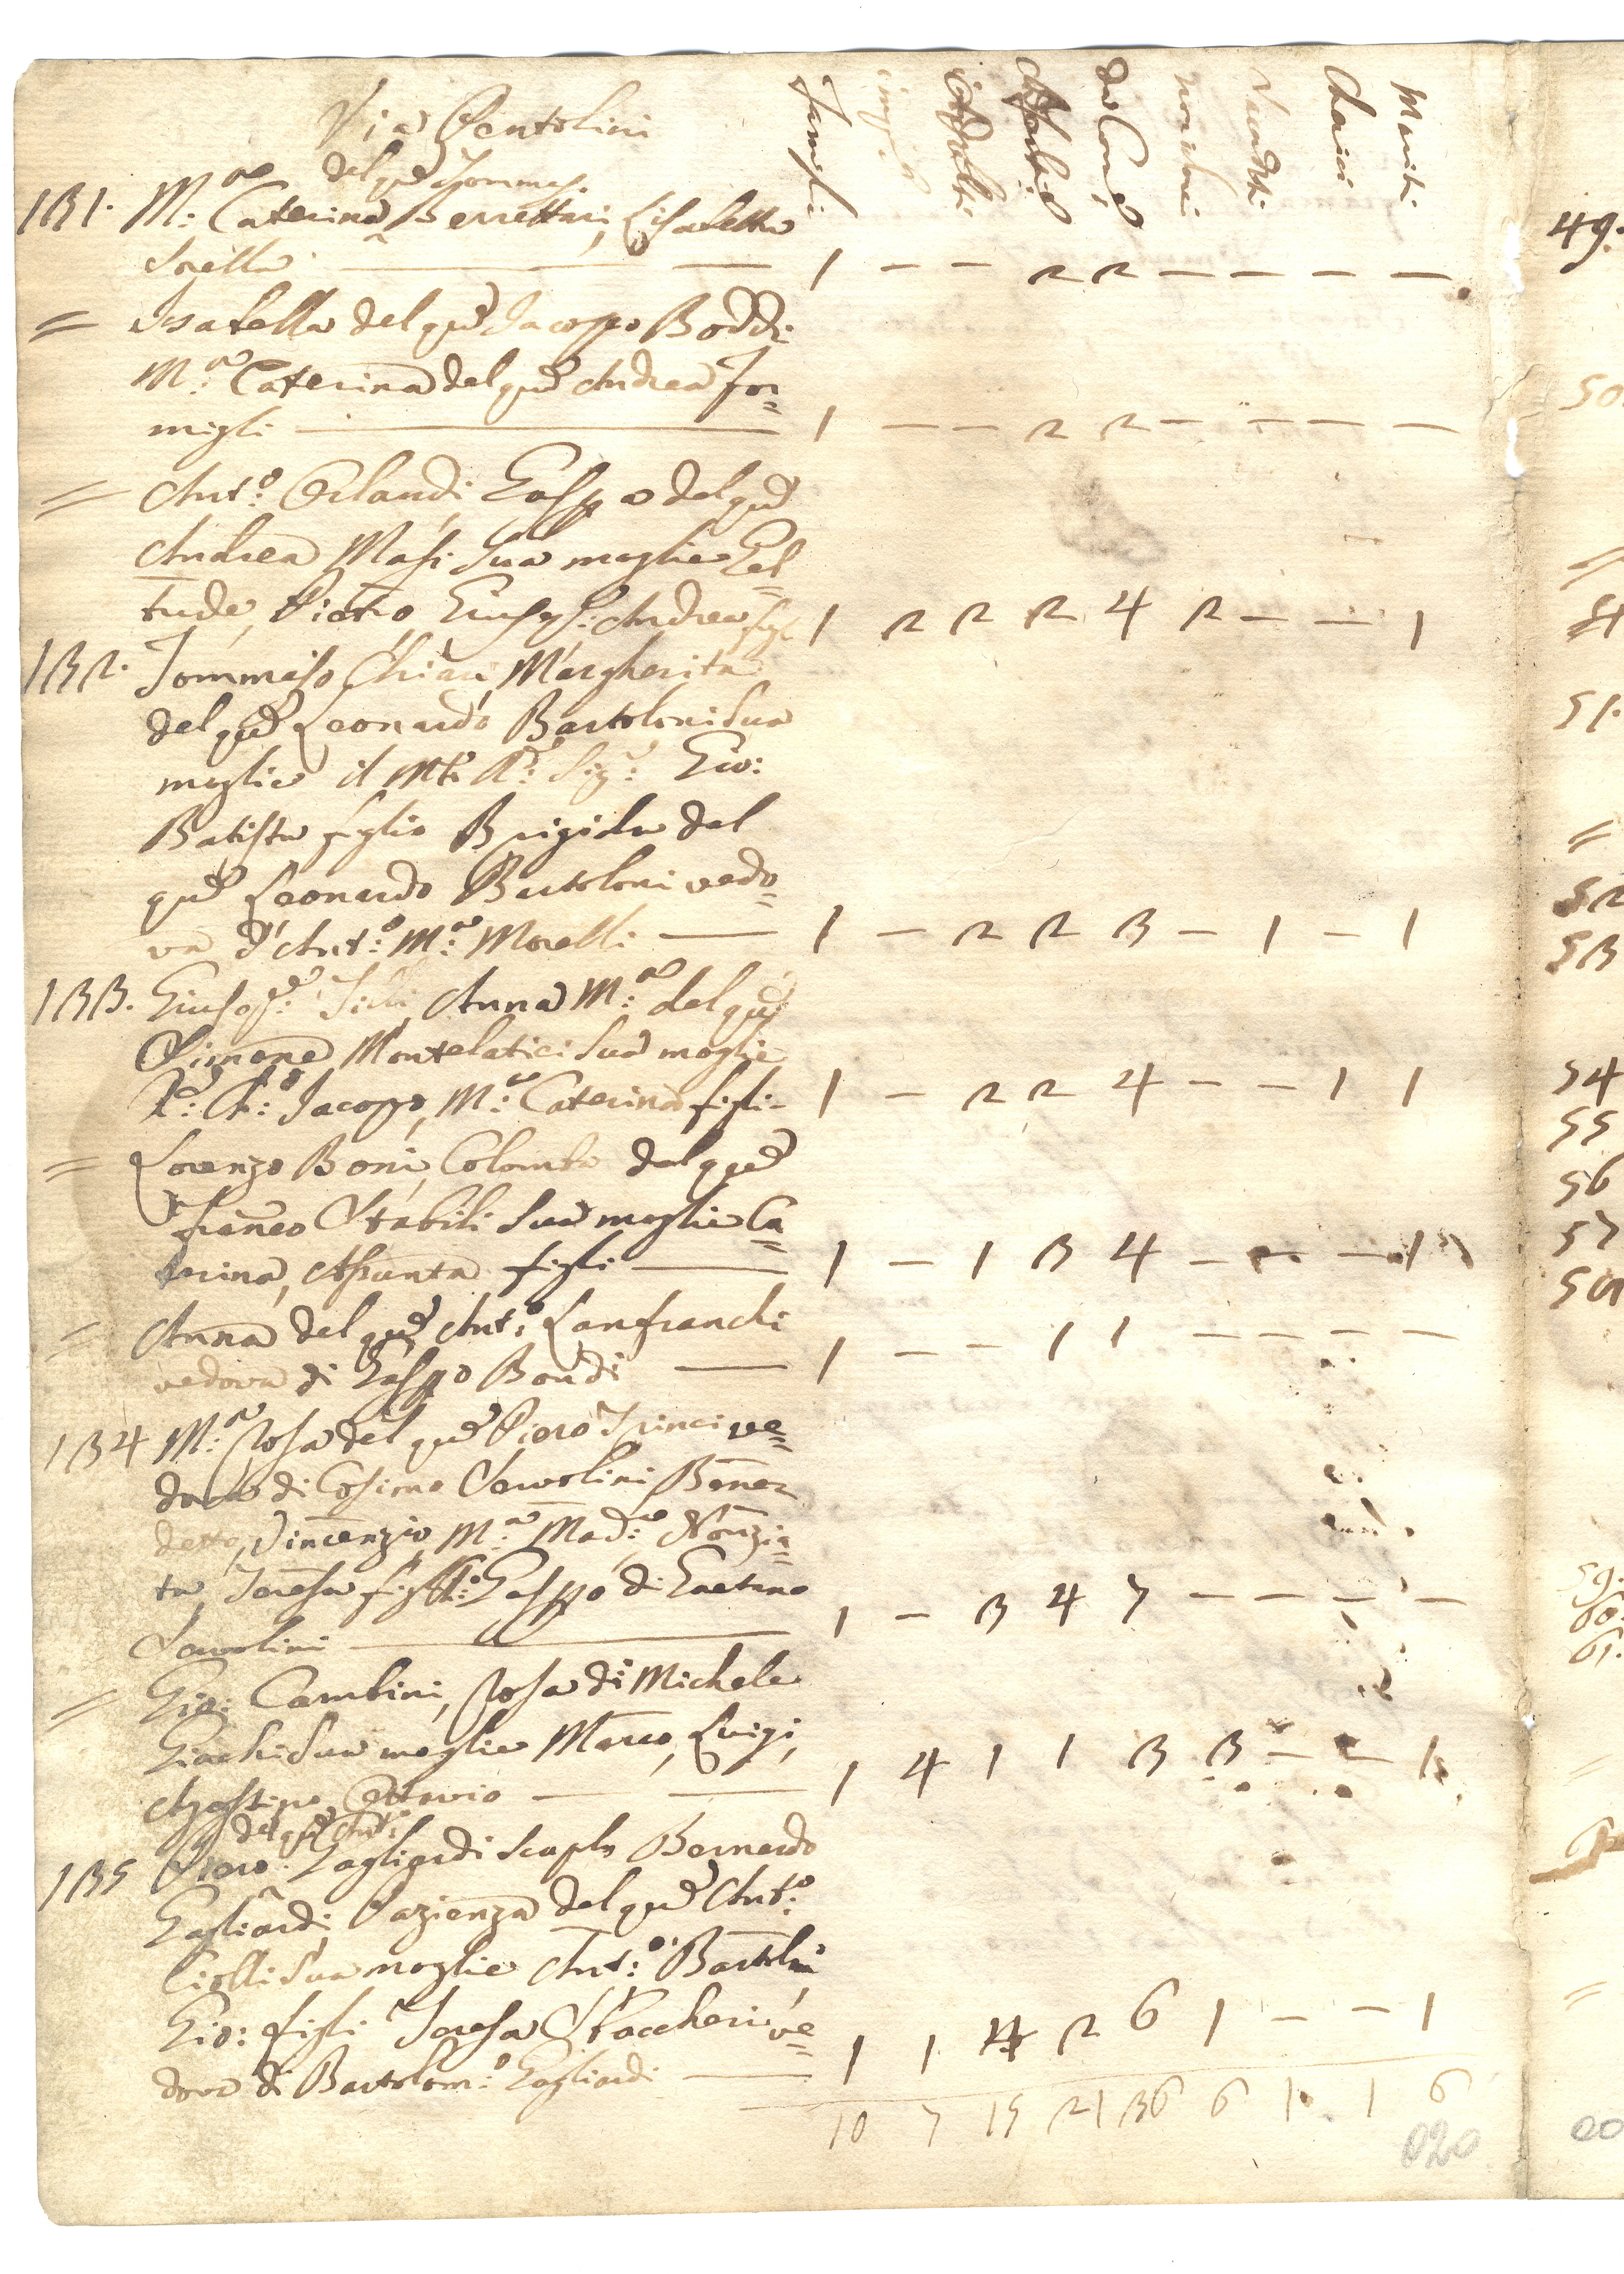 Via Pentolini
Famigli
Mariti
Cherici
del qm̃ Tommas.
131. M.ª Caterina Berrettari, Lisabetta
Sorella 1 — — 2 2 — — — —
= Isabella del qm̃ Jacopo Boddi
M.ª Caterina del qm̃ Andrea For=
migli 1 — — 2 2 — — — —
= Ant.º Orlandi, Gasp.ª del qm̃
Andrea Masi Sua moglie Gel=
trude, Pietro, Giusep.e: Andrea figl 1 2 2 2 4 2 — — 1
132. Tommaso Chiari, Margherita
del qm̃ Leonardo Bartoloni Sua
moglie il Mto R.do Sig.r Gio:
Batista figlio Brigida del
qm̃ Leonardo Bartoloni vedo=
va d'Ant.º M.ª Morelli 1 — 2 2 3 — 1 — 1
133. Giusep.e: Anna M.ª del qm̃
Simone Montelatici Sua moglie
Jacopo, M.ª Caterina figli 1 — 2 2 4 — — 1 1
= Lorenzo Boni, Colomba del qm̃
Franco Stabili Sua moglie Ca=
terina, Assunta figli 1 — 1 3 4 — — — 1
= Anna del qm̃ Ant.º Lanfranchi
vedova di Gasppo Bondi 1 — — 1 1 — — — —
134 M.ª Rosa del qm̃ Piero Trinci ve=
dova di Cosimo Savolini Bene=
detto, Vincenzio, M.ª Mad.ª Nonzia=
ta, Teresa figli: Gasppo di Gaetano
Savolini 1 — 3 4 7 — — — —
= Gio: Cambini, Rosa di Michele
Giachi Sua moglie Marco, Luigi,
Agostino, Ottavio 1 4 1 1 3 3 — — 1
del qm̃ Ant.º
135 Piero Gagliardi scapolo Bernardo
Gagliardi, Pazienza del qm̃ Ant.º
Ciolli Sua moglie Ant.º Bartolni
Gio: figli Teresa Staccheri ve=
dova di Bartolom.º Gagliardi 1 1 4 2 6 1 — — 1
10 7 15 21 36 6 1 1 6
020
49.
50
51.
=
52
53
54
55
56
57
59.
60.
61.
=
=